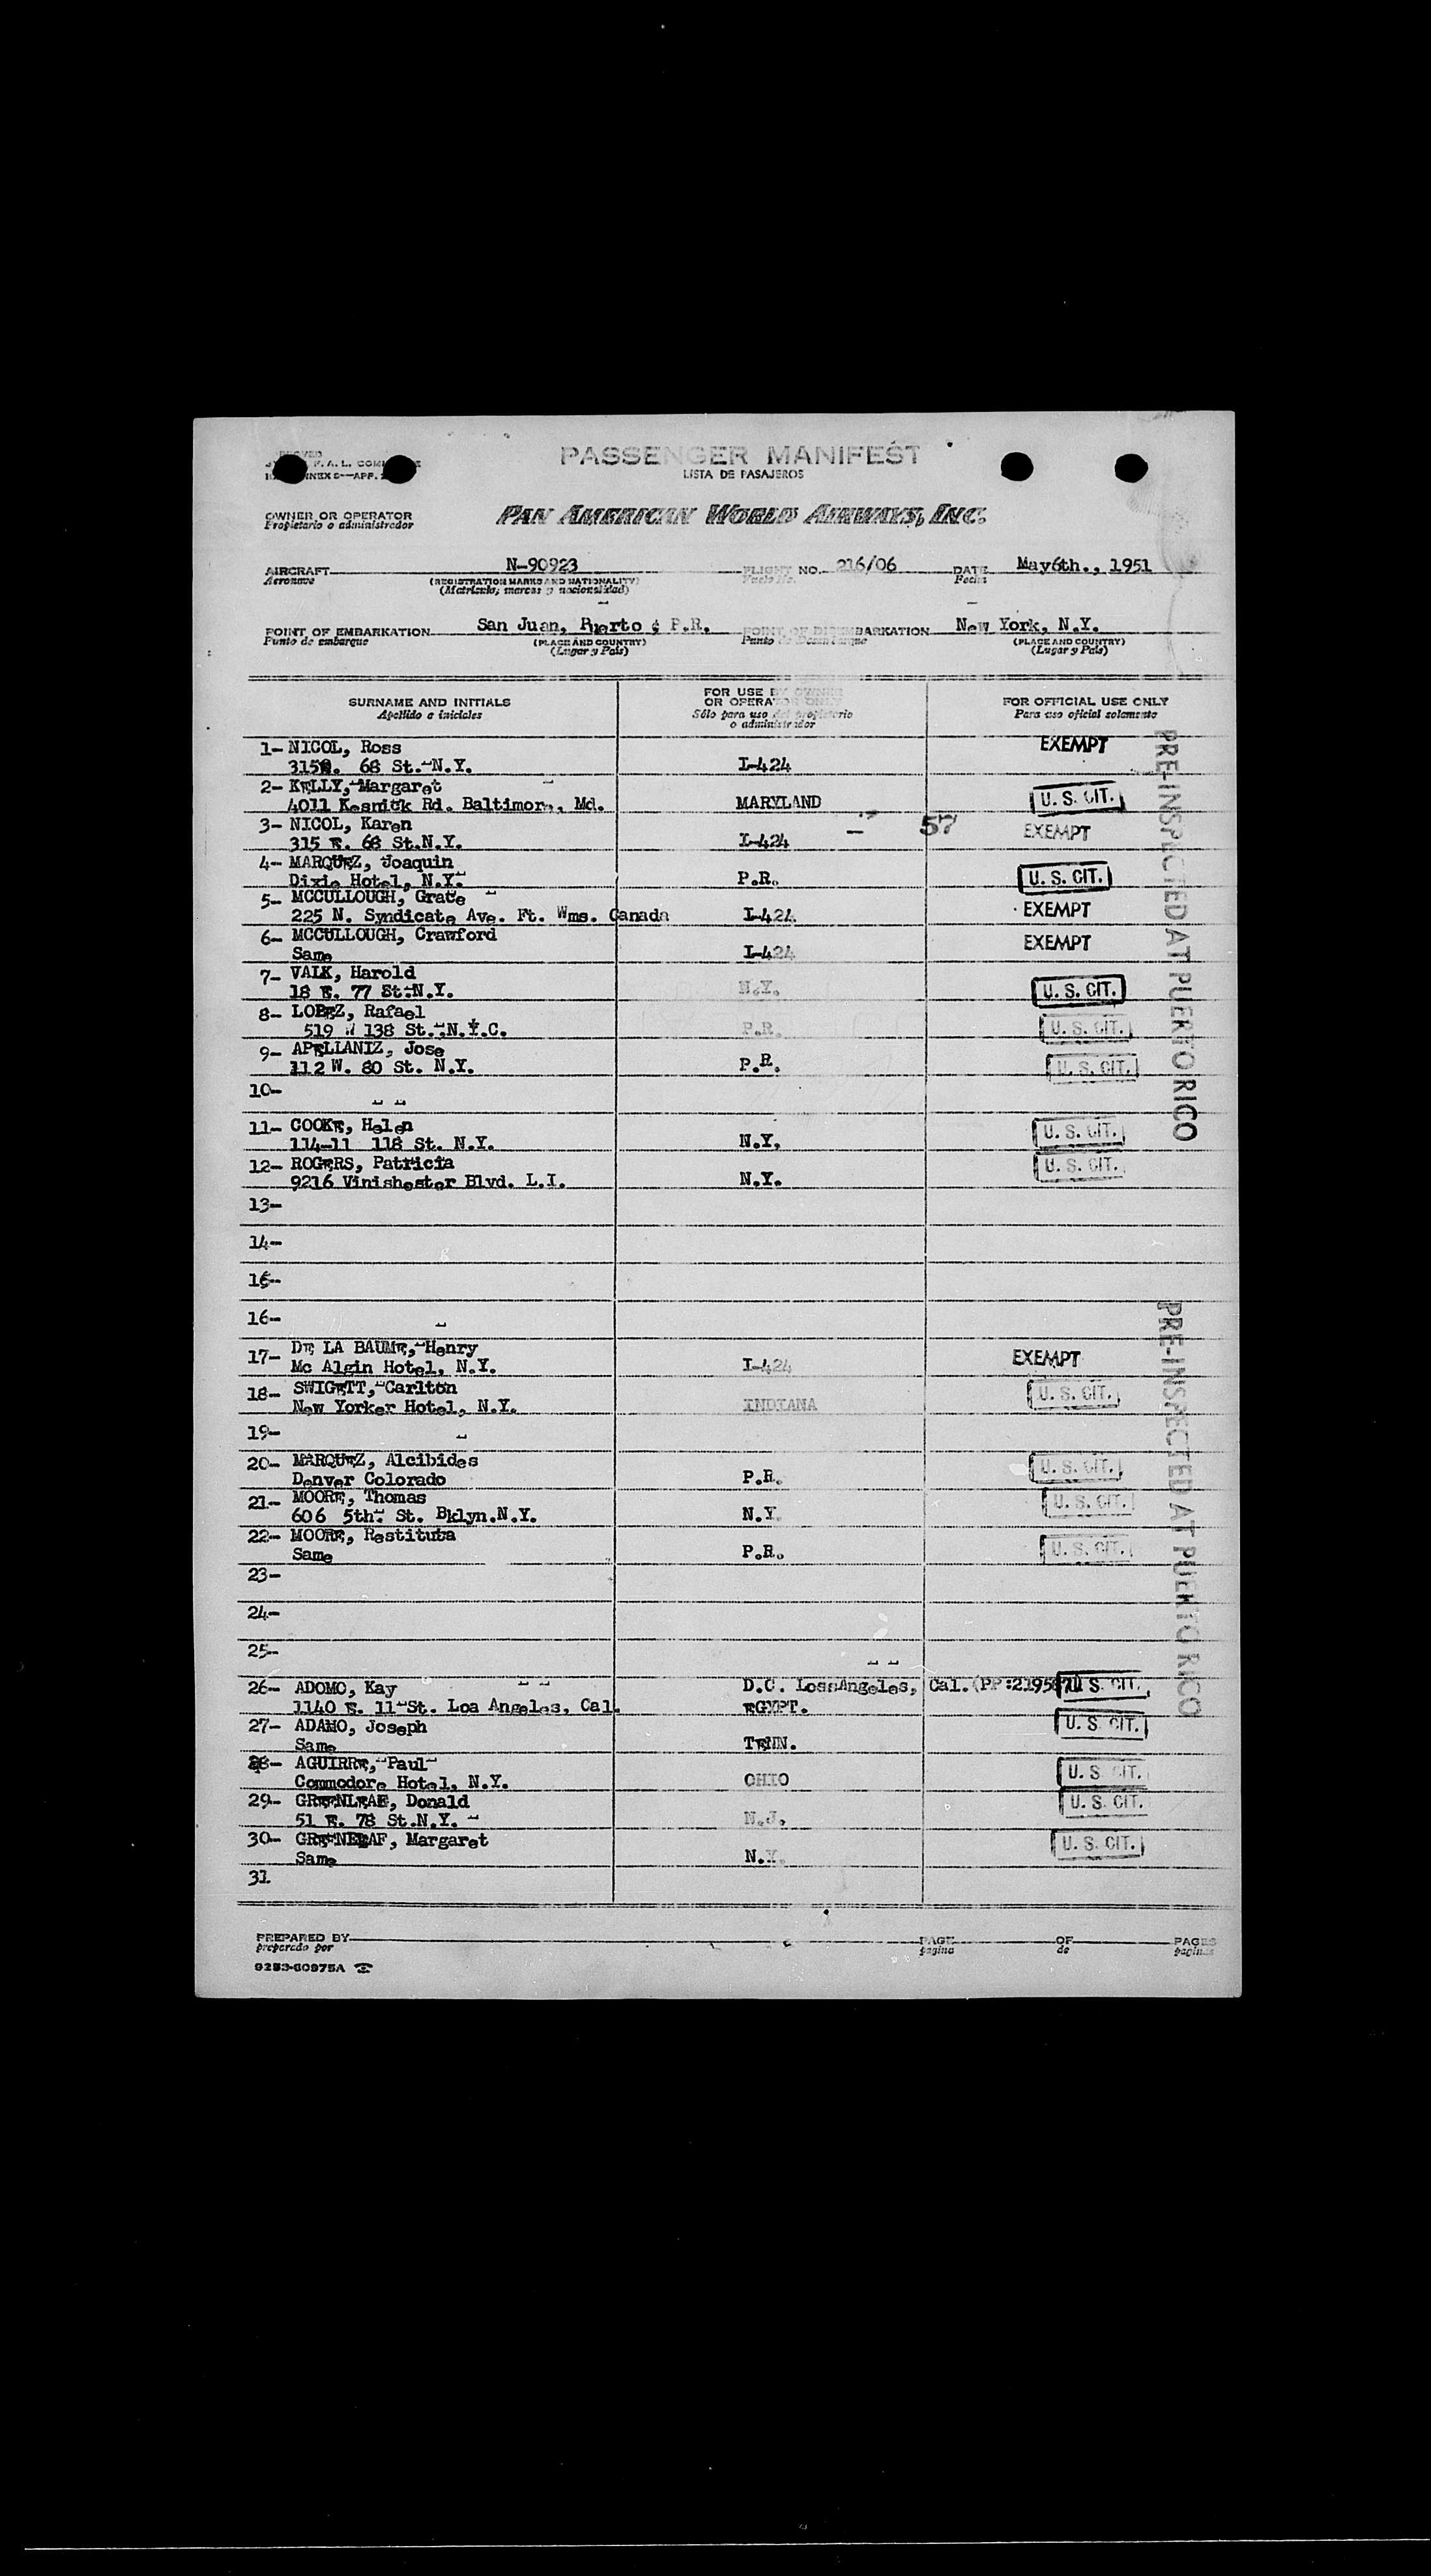 PASSENGER MANIFEST
LISTA DE PASAJEROS
F. A. L.
OWNER OR OPERATOR
Propietario o administrador
PAN AMERICAN WORLD AIRWAYS, INC.
AIRCRAFT N-90923 FLIGHT NO. 216/06 DATE May6th., 1951
Aeronave (REGISTRATION MARKS AND NATIONALITY) Vuelo No. Fecha
(Matrícula, marcas y nacionalidad)
POINT OF EMBARKATION San Juan, Puerto & P.R. POINT OF DISEMBARKATION New York, N.Y.
Punto de embarque (PLACE AND COUNTRY) Punto de Desembarque (PLACE AND COUNTRY)
(Lugar y País) (Lugar y País)
SURNAME AND INITIALS FOR USE BY OWNER OR OPERATOR ONLY FOR OFFICIAL USE ONLY
Apellido e iniciales Sólo para uso del propietario o administrador Para uso oficial solamente
1- NICOL, Ross EXEMPT
315E. 68 St.-N.Y. I-424
2- KELLY,-Margaret
4011 Kesnick Rd. Baltimore, Md. MARYLAND U. S. CIT.
3- NICOL, Karen 57 EXEMPT
315 E. 68 St.N.Y. I-424
4- MARQUEZ, Joaquin
Dixie Hotel, N.Y. P.R. U. S. CIT.
5- MCCULLOUGH, Grace
225 N. Syndicate Ave. Ft. Wms. Canada I-424 EXEMPT
6- MCCULLOUGH, Crawford EXEMPT
Same I-424
7- VALK, Harold
18 E. 77 St.N.Y. N.Y. U. S. CIT.
8- LOPEZ, Rafael
519 W 138 St.-N.Y.C. P.R. U. S. CIT.
9- APELLANIZ, Jose
112 W. 80 St. N.Y. P.R. U. S. CIT.
10-
11- COOKE, Helen
114-11 118 St. N.Y. N.Y. U. S. CIT.
12- ROGERS, Patricia
9216 Vinishester Blvd. L.I. N.Y. U. S. CIT.
13-
14-
15-
16-
17- DE LA BAUME,-Henry
Mc Algin Hotel, N.Y. I-424 EXEMPT
18- SWIGETT,-Carlton
New Yorker Hotel, N.Y. INDIANA U. S. CIT.
19-
20- MARQUEZ, Alcibides
Denver Colorado P.R. U. S. CIT.
21- MOORE, Thomas
606 5th. St. Bklyn.N.Y. N.Y. U. S. CIT.
22- MOORE, Restituta
Same P.R. U. S. CIT.
23-
24-
25-
26- ADOMO, Kay D.C. LossAngeles, Cal. U. S. CIT.
1140 E. 11-St. Loa Angeles, Cal. EGYPT.
27- ADAMO, Joseph U. S. CIT.
Same TENN.
28- AGUIRRE,-Paul
Commodore Hotel, N.Y. OHIO U. S. CIT.
29- GREENLEAF, Donald
51 E. 78 St.N.Y. N.J. U. S. CIT.
30- GREENELEAF, Margaret
Same N.Y. U. S. CIT.
31
PRE-INSPECTED AT PUERTO RICO
PRE-INSPECTED AT PUERTO RICO
PREPARED BY PAGE OF PAGES
preparado por pagina de paginas
9253-60975A